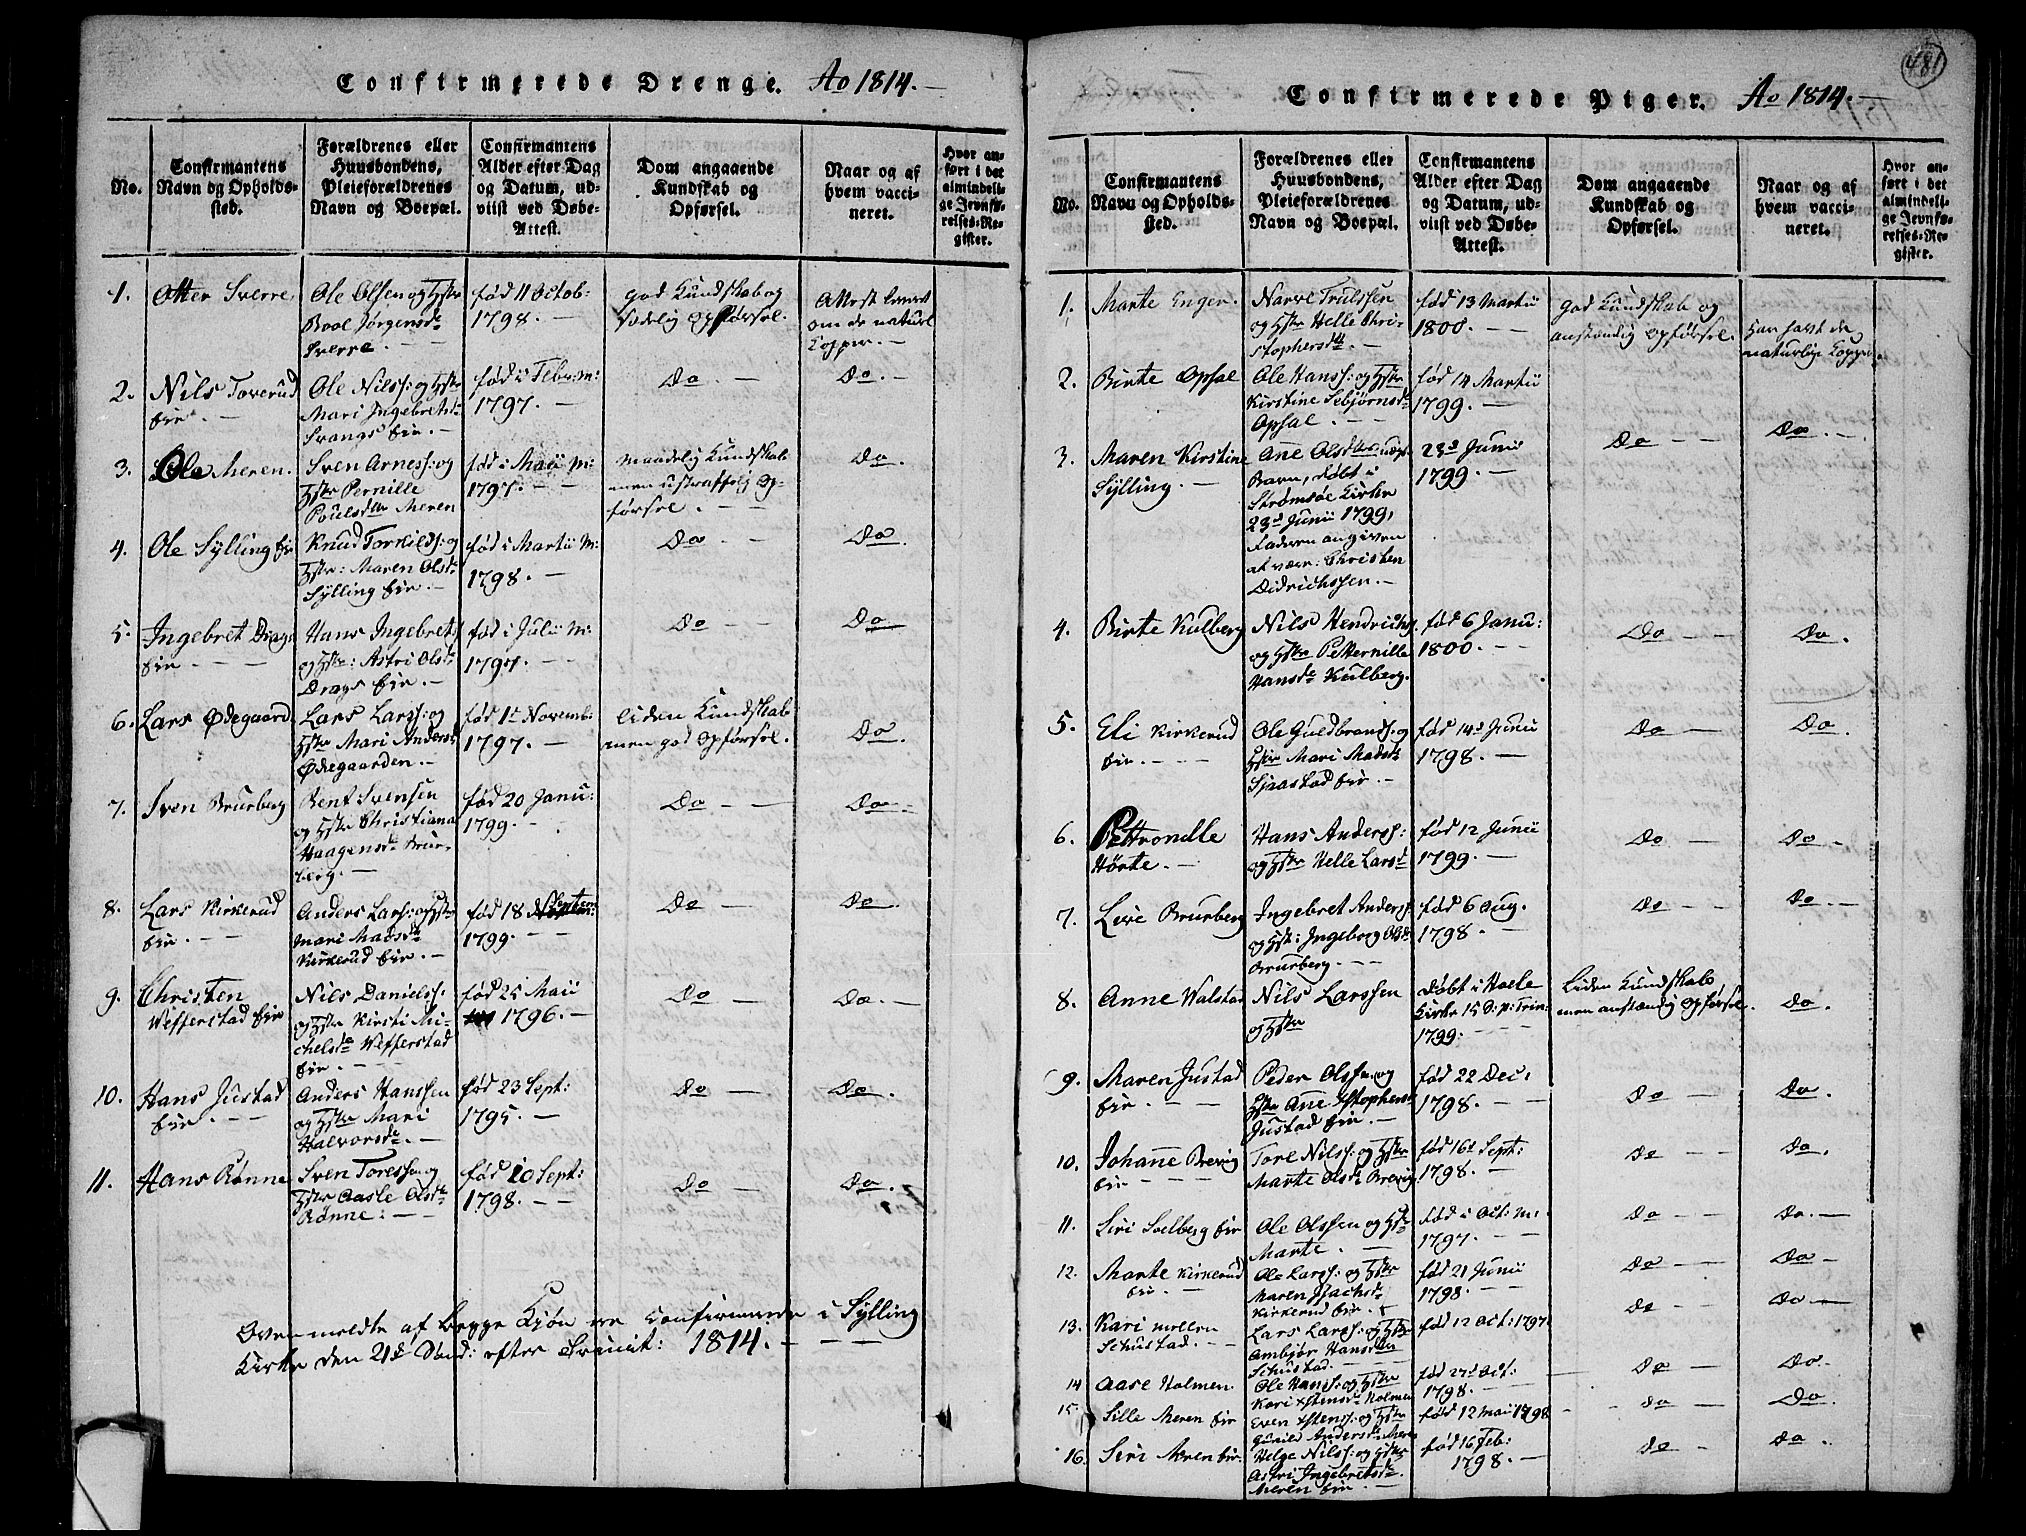 Confirmerede Drenge. Ao 1814.
No.
Confirmantens
Navn og Opholds-
sted.
Forældrenes eller
Huusbondens,
Pleieforældrenes
Navn og Boepæl.
Confirmantens
Alder efter Dag
og Datum, ud-
viist ved Døbe-
Attest.
Dom angaaende
Kundskab og
Opførsel.
Naar og af
hvem vacci-
neret.
Hvor an-
ført i det
almindeli-
ge Jevnfø-
relses-Re-
gister.
1.
Otter Sverre
Ole Olsen og Hstr
Boel Jørgensd
Sverre.
født 11 Octob:
1798.
god Kundskab og
sædelig Opførsel.
Attest
om de naturl
Kopper.
2.
Nils Toverud
Eie.
Ole Nilss: og Hstr
Mari Ingebretsd
Svangs Eie.
fød i Febr: M:
1797.
Do
Do.
3.
Ole Meren.
Sven Arness: og
Hstr Pernille
Poulsdtr Meren
fød i Maii M:
1797.
maadelig Kundskab
men ustraffelig Op-
førsel.
Do.
4.
Ole Sylling Eie
Knud Torkilds: og
Hstr: Maren Olsd
Sylling Eie.
fød i Martii M:
1798.
Do
Do
5.
Ingebret Drags
Eie.
Hans Ingebrets
og Hstr: Astri Olsd
Drags Eie.
fød i Julii M:
1797.
Do
Do
6.
Lars Ødegaard
Lars Larss: og
Hstr Mari Andersd
Ødegaarden.
fød 1st Novemb:
1797.
liden Kundskab
men god Opførsel.
Do.
7.
Sven Brurberg
Bent Svensen
og Hstr Christiana
Haagensd Brur-
berg.
fød 20 Janu:
1799.
Do
Do
8.
Lars Kirkerud
Eie.
Anders Larss: og Hstr
Mari Madsd
Kirkerud Eie.
fød 18
1799.
Do
Do.
9.
Christen
Wefferstad Eie
Nils Daniels:
og Hstr Kirsti Mi-
chelsd Wefferstad
Eie.
fød 25 Maii
1796.
Do
Do.
10.
Hans Justad
Eie.
Anders Hanssen
og Hstr Mari
Halvorsd.
fød 23 Sept:
1795.
Do
Do.
11.
Hans Rønne
Sven Toress: og
Hstr Aasle Olsd
Rønne:
fød 10 Sept:
1798.
Do
Do.
Ovenmeldte af begge Kjøn ere confirmerede i Sylling
Kirke den 21d Sønd: efter Trinit: 1814.
481
Confirmerede Piger. Ao 1814.
No.
Confirmantens
Navn og Opholds-
sted.
Forældrenes eller
Huusbondens,
Pleieforældrenes
Navn og Boepæl.
Confirmantens
Alder efter Dag
og Datum, ud-
viist ved Døbe-
Attest.
Dom angaaende
Kundskab og
Opførsel.
Naar og af
hvem vacci-
neret.
Hvor an-
ført i det
almindeli-
ge Jevnfø-
relses-Re-
gister.
1.
Marte Enger.
Narve Trulssen
og Hstr Helle Chri-
stophersdtr.
fød 13 Martii
1800.
god Kundskab og
anstændig Opførsel.
har havt de
naturlige Kopper.
2.
Birte Opsal
Ole Hanss: og Hstr
Kirstine Sebjørnsd
Opsal.
fød 14 Martii
1799.
Do
Do.
3.
Maren Kirstine
Sylling.
Ane Olsdtrs uægte
Barn, døbt i
Strømsøe Kirke
23d Junii 1799,
Faderen angiven
at være: Christen
Didrichssen.
23d Junii
1799.
4.
Birte Kulberg
Nils Hendrichs.
og Hstr Petternille
Hansd Kulberg.
fød 6 Janu:
1800.
Do
Do.
5.
Eli Kirkerud
Eie.
Ole Guldbrands: og
Hstr Mari Madsd
Sjaastad Eie.
fød 14d Junii
1798.
Do
Do.
6.
Pettronille
Hørte.
Hans Anderss:
og Hstr Helle Larsd
fød 12 Junii
1799.
Do
Do.
7.
Live Brurberg
Ingebret Anders
og Hstr: Ingeborg Olsd
Brurberg.
fød 6 Aug.
1798.
Do
Do.
8.
Anne Walstad
Nils Larssen
og Hstr
døbt i Hole
Kirke 15 D: p: Trin:
1799.
Liden Kundskab
men anstændig Opførsel.
Do.
9.
Maren Justad
Eie.
Peder Olss: og
Hstr Ane Xstophersd
Justad Eie.
fød 22 Dec:
1798.
Do
Do.
10.
Johanne Brevig
Eie
Tore Nilss: og Hstr
Marte Olsd Brevig
fød 16d Sept:
1798.
Do
Do.
11.
Siri Solberg Eie
Ole Olssen og Hstr
Marte.
fød i Oct: M:
1797.
Do
Do.
12.
Marte Kirkerud
Eie.
Ole Larss: og Hstr
Maren Isachsd
Kirkerud Eie.
fød 21 Junii
1798.
Do
Do
13.
Kari Mellem
Schustad.
Lars Larss: og Hstr
Ambjør Hansdtr
Schustad.
fød 12 Oct: 1797.
Do
Do
14
Aase Holmen.
Ole Hanss: og Hstr
Kari Xstensd Holmen
fød 27d Oct:
1798.
Do
Do
15.
Sille Meren Eie
Even Xstens: og Hstr
Gunild Andersd Meren
fød 12 Maii 1798
Do
Do
16.
Siri Meren Eie.
Helge Nilss: og Hstr
Astri Ingebretsd
Meren Eie.
fød 16 Feb:
1798.
Do
Do.